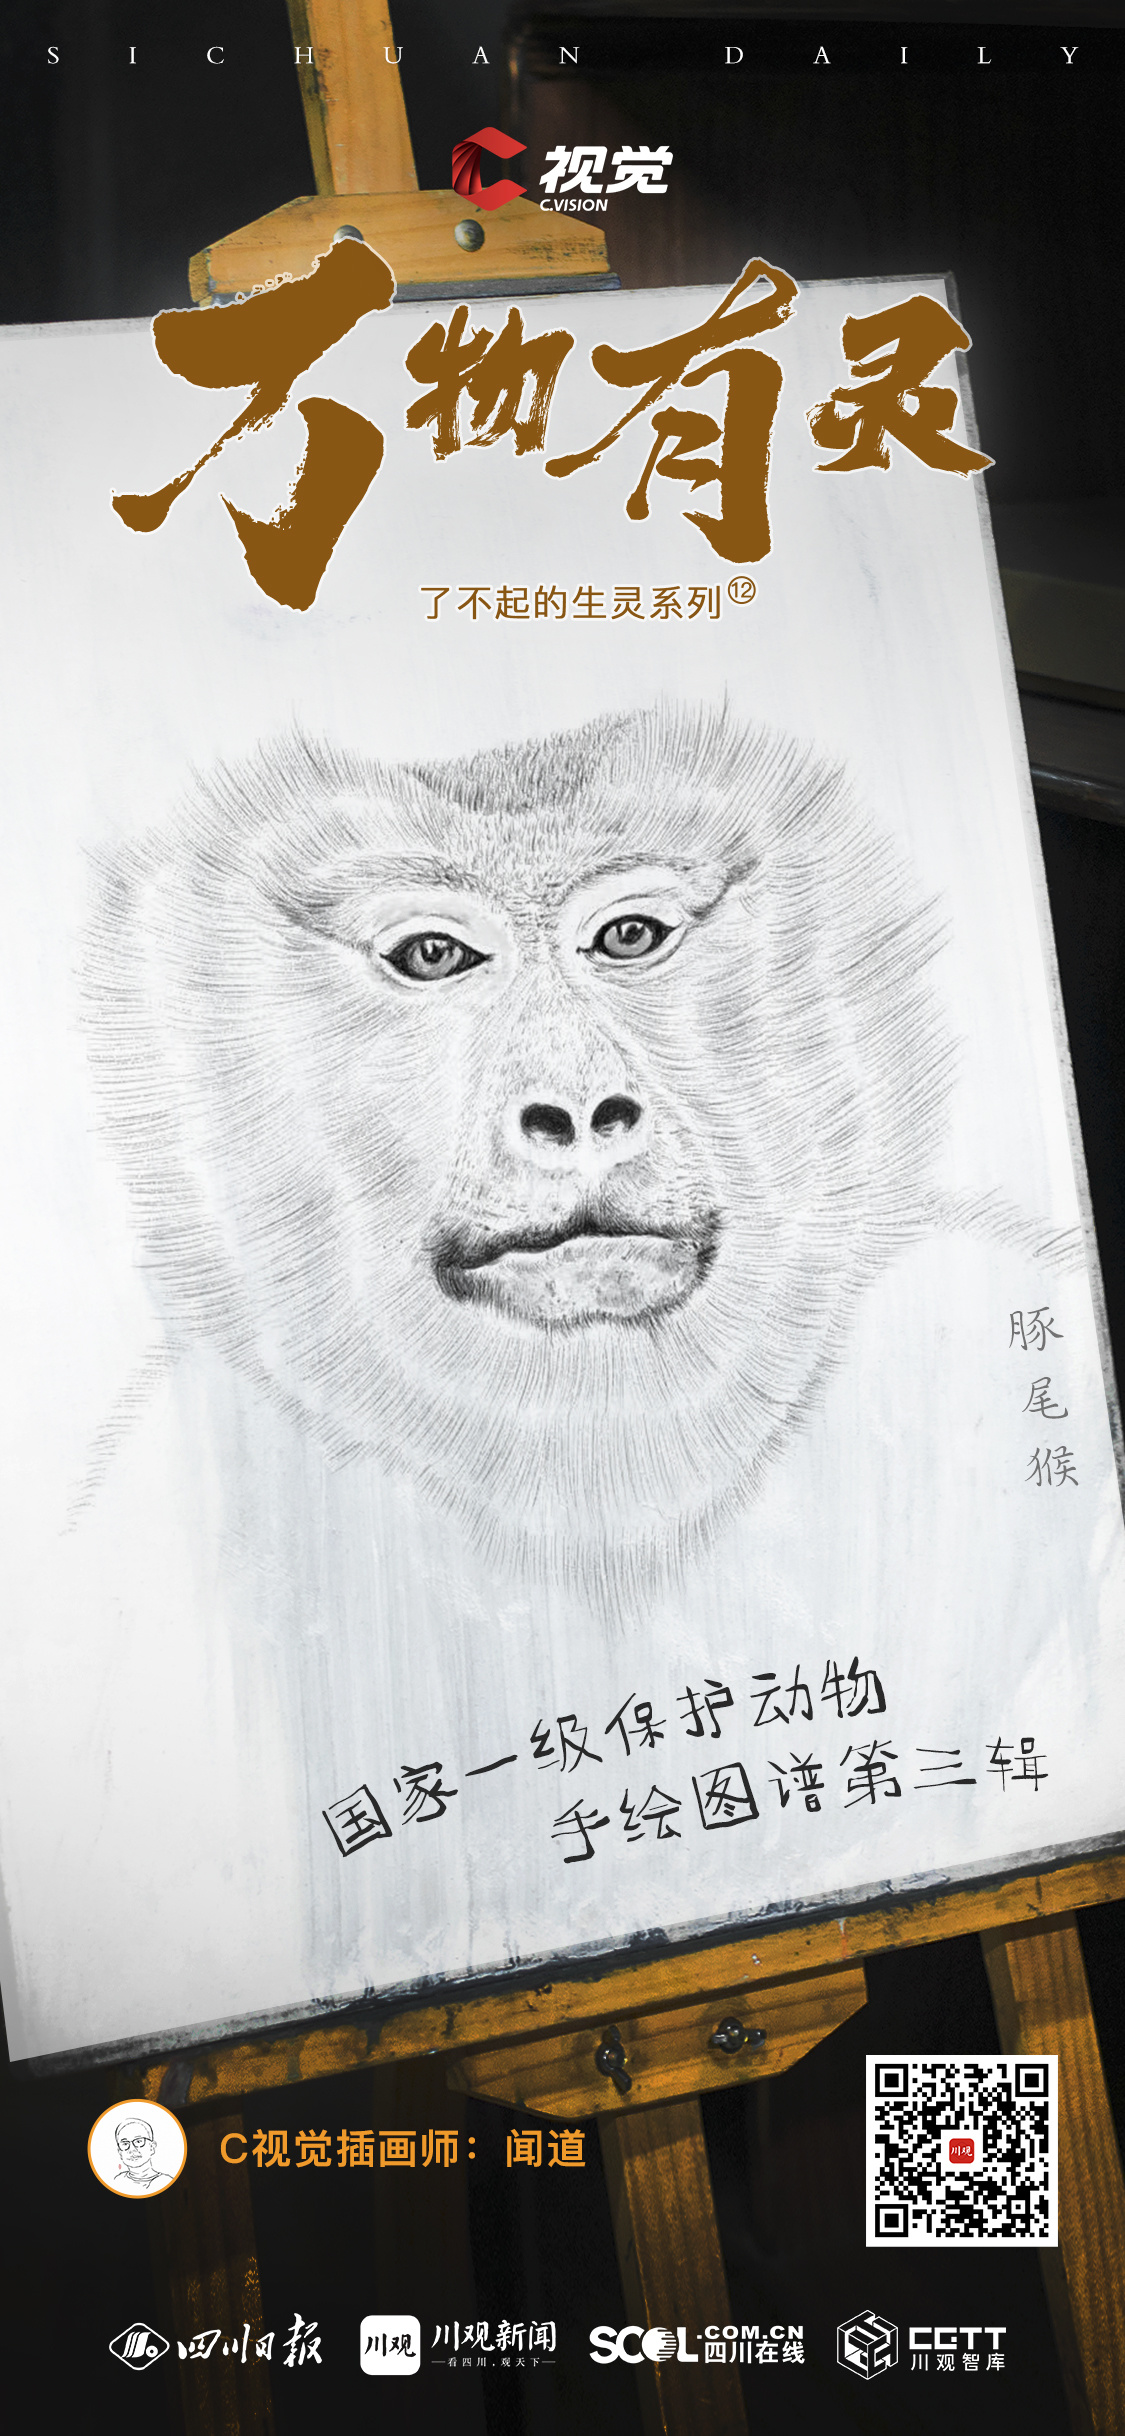 SICHUAN DAILY
视觉
C.VISION
万物有灵
了不起的生灵系列⑫
豚尾猴
国家一级保护动物
手绘图谱第三辑
C视觉插画师：闻道
川观
四川日报
川观
川观新闻
看四川，观天下
SCOL.COM.CN
四川在线
CGTT
川观智库